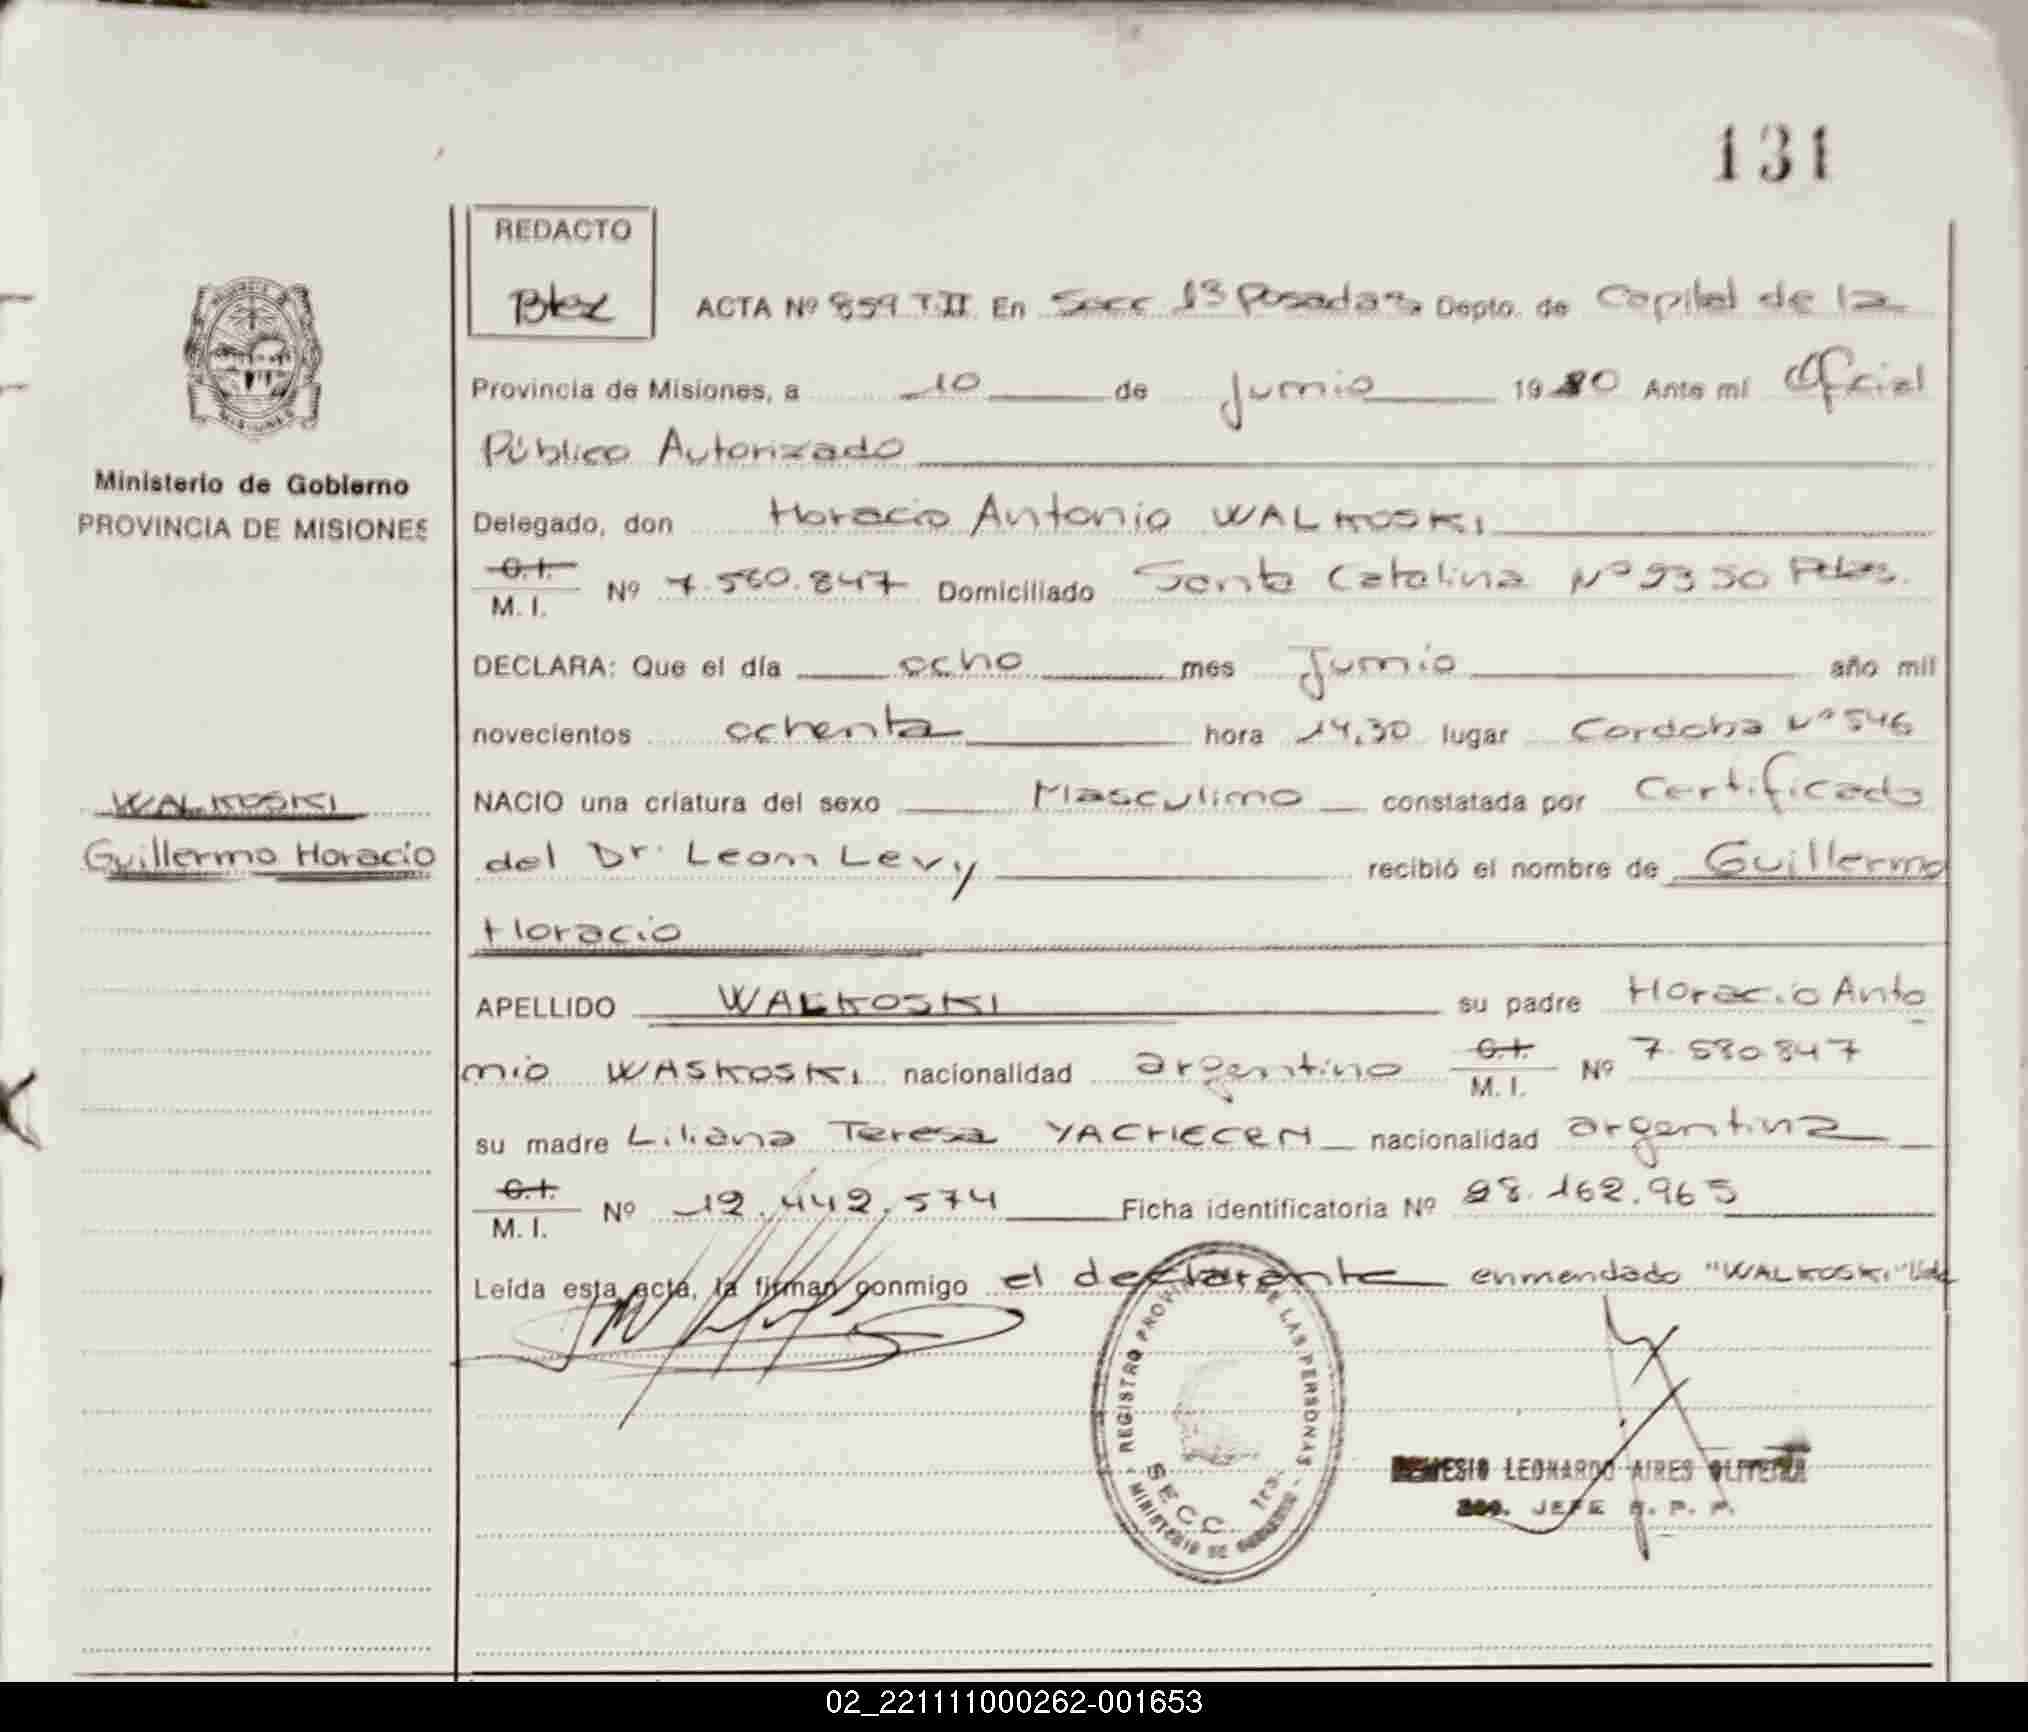 131
REDACTO
ACTA Nº 859 T.II En Secc 1ª Posadas, Depto. de Capital de la
Provincia de Misiones, a 10 de Junio 1980 Ante mí Oficial
Público Autorizado
Ministerio de Gobierno
PROVINCIA DE MISIONES
Delegado, don Horacio Antonio WALKOSKI
C.I.
M. I. Nº 7.580.847 Domiciliado Santa Catalina Nº 2350 Pdas.
DECLARA: Que el día ocho mes Junio año mil
novecientos ochenta hora 14,30 lugar Cordoba Nº 546
WALKOSKI
Guillermo Horacio
NACIO una criatura del sexo Masculino constatada por Certificado
del Dr. Leon Levy recibió el nombre de Guillermo
Horacio
APELLIDO WALKOSKI su padre Horacio Anto
nio WASKOSKI nacionalidad argentino C.I.
M. I. Nº 7.580.847
su madre Liliana Teresa YACHECEN nacionalidad argentina
C.I.
M. I. Nº 12.442.574 Ficha identificatoria Nº 28.162.965
Leída esta acta, la firman conmigo el declarante enmendado "WALKOSKI"
REGISTRO PROVINCIAL DE LAS PERSONAS
SECC. 1ra.
MINISTERIO DE GOBIERNO
NEMESIO LEONARDO AIRES OLIVEIRA
JEFE R. P. P.
02_221111000262-001653